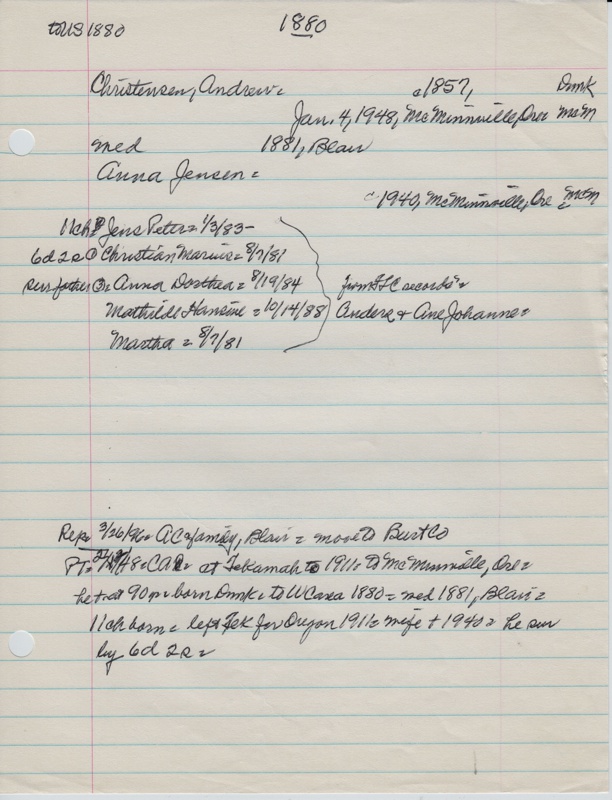 to US 1880
1880
Christensen, Andrew = c1857, Dmk
Jan. 4, 1948, McMinnville, Ore McM
med 1881, Blair
Anna Jensen =
c1940, McMinnville, Ore = McM
11ch Jens Peter = 1/3/83 -
6d 2s Christian Marius = 8/7/81
surv father Anna Dorthea = 8/19/84 from FLC records =
Mathilde Hansine = 10/14/88 Anders & Ane Johanne =
Martha = 8/7/81
Rep = 3/26/96 = AC & family, Blair = move to Burt Co
PT = 48 = CAC = at Tekamah to 1911 = to McMinnville, Ore =
he + at 90 = born Dmk = to W C area 1880 = med 1881, Blair =
11 ch born = left Tek for Oregon 1911 = wife + 1940 = he sur
by 6d 2s =